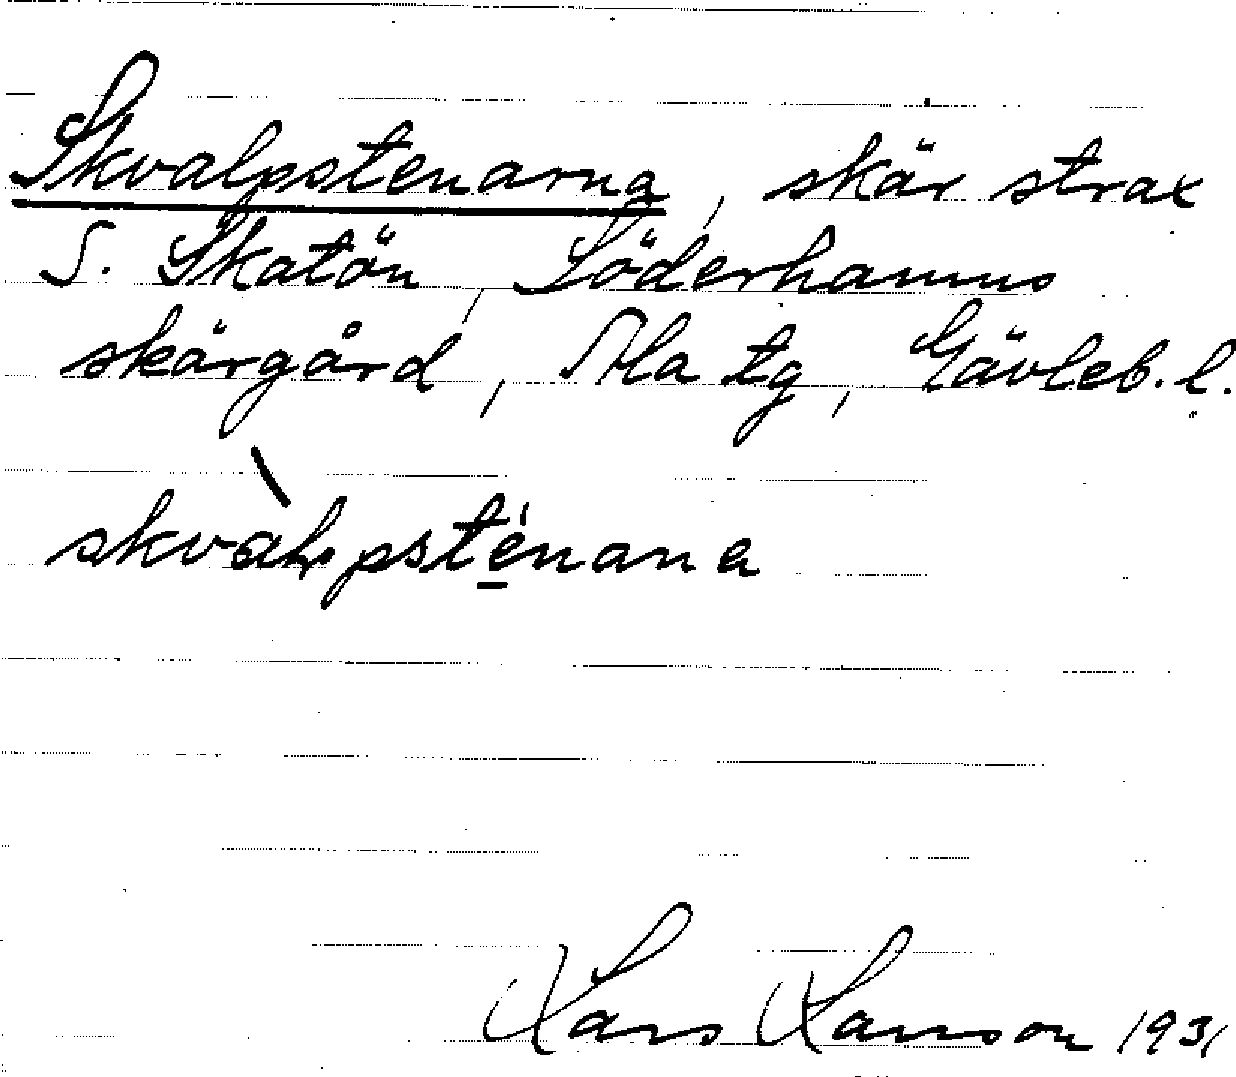 Skvalpstenarna, skär strax
S. Skatön, Söderhamns
skärgård, Ala tg, Gävleb. l.
skvalpstènana
Lars Larsson 1931